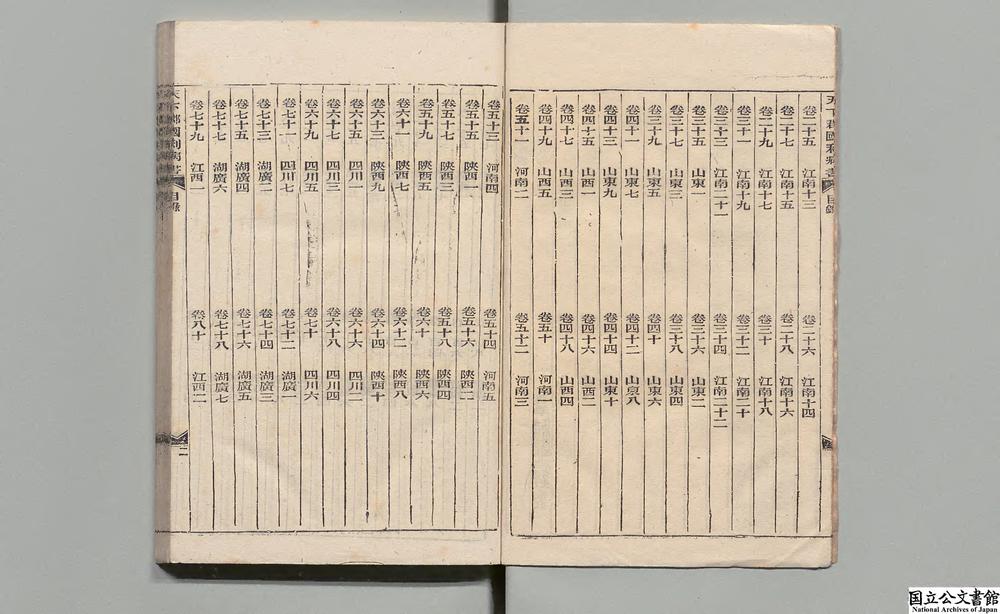 天下郡國利病書 目錄
卷二十五 江南十三 卷二十六 江南十四
卷二十七 江南十五 卷二十八 江南十六
卷二十九 江南十七 卷三十 江南十八
卷三十一 江南十九 卷三十二 江南二十
卷三十三 江南二十一 卷三十四 江南二十二
卷三十五 山東一 卷三十六 山東二
卷三十七 山東三 卷三十八 山東四
卷三十九 山東五 卷四十 山東六
卷四十一 山東七 卷四十二 山東八
卷四十三 山東九 卷四十四 山東十
卷四十五 山西一 卷四十六 山西二
卷四十七 山西三 卷四十八 山西四
卷四十九 山西五 卷五十 河南一
卷五十一 河南二 卷五十二 河南三
卷五十三 河南四 卷五十四 河南五
卷五十五 陝西一 卷五十六 陝西二
卷五十七 陝西三 卷五十八 陝西四
卷五十九 陝西五 卷六十 陝西六
卷六十一 陝西七 卷六十二 陝西八
卷六十三 陝西九 卷六十四 陝西十
卷六十五 四川一 卷六十六 四川二
卷六十七 四川三 卷六十八 四川四
卷六十九 四川五 卷七十 四川六
卷七十一 四川七 卷七十二 湖廣一
卷七十三 湖廣二 卷七十四 湖廣三
卷七十五 湖廣四 卷七十六 湖廣五
卷七十七 湖廣六 卷七十八 湖廣七
卷七十九 江西一 卷八十 江西二
天下郡國利病書 目錄 二
国立公文書館
National Archives of Japan